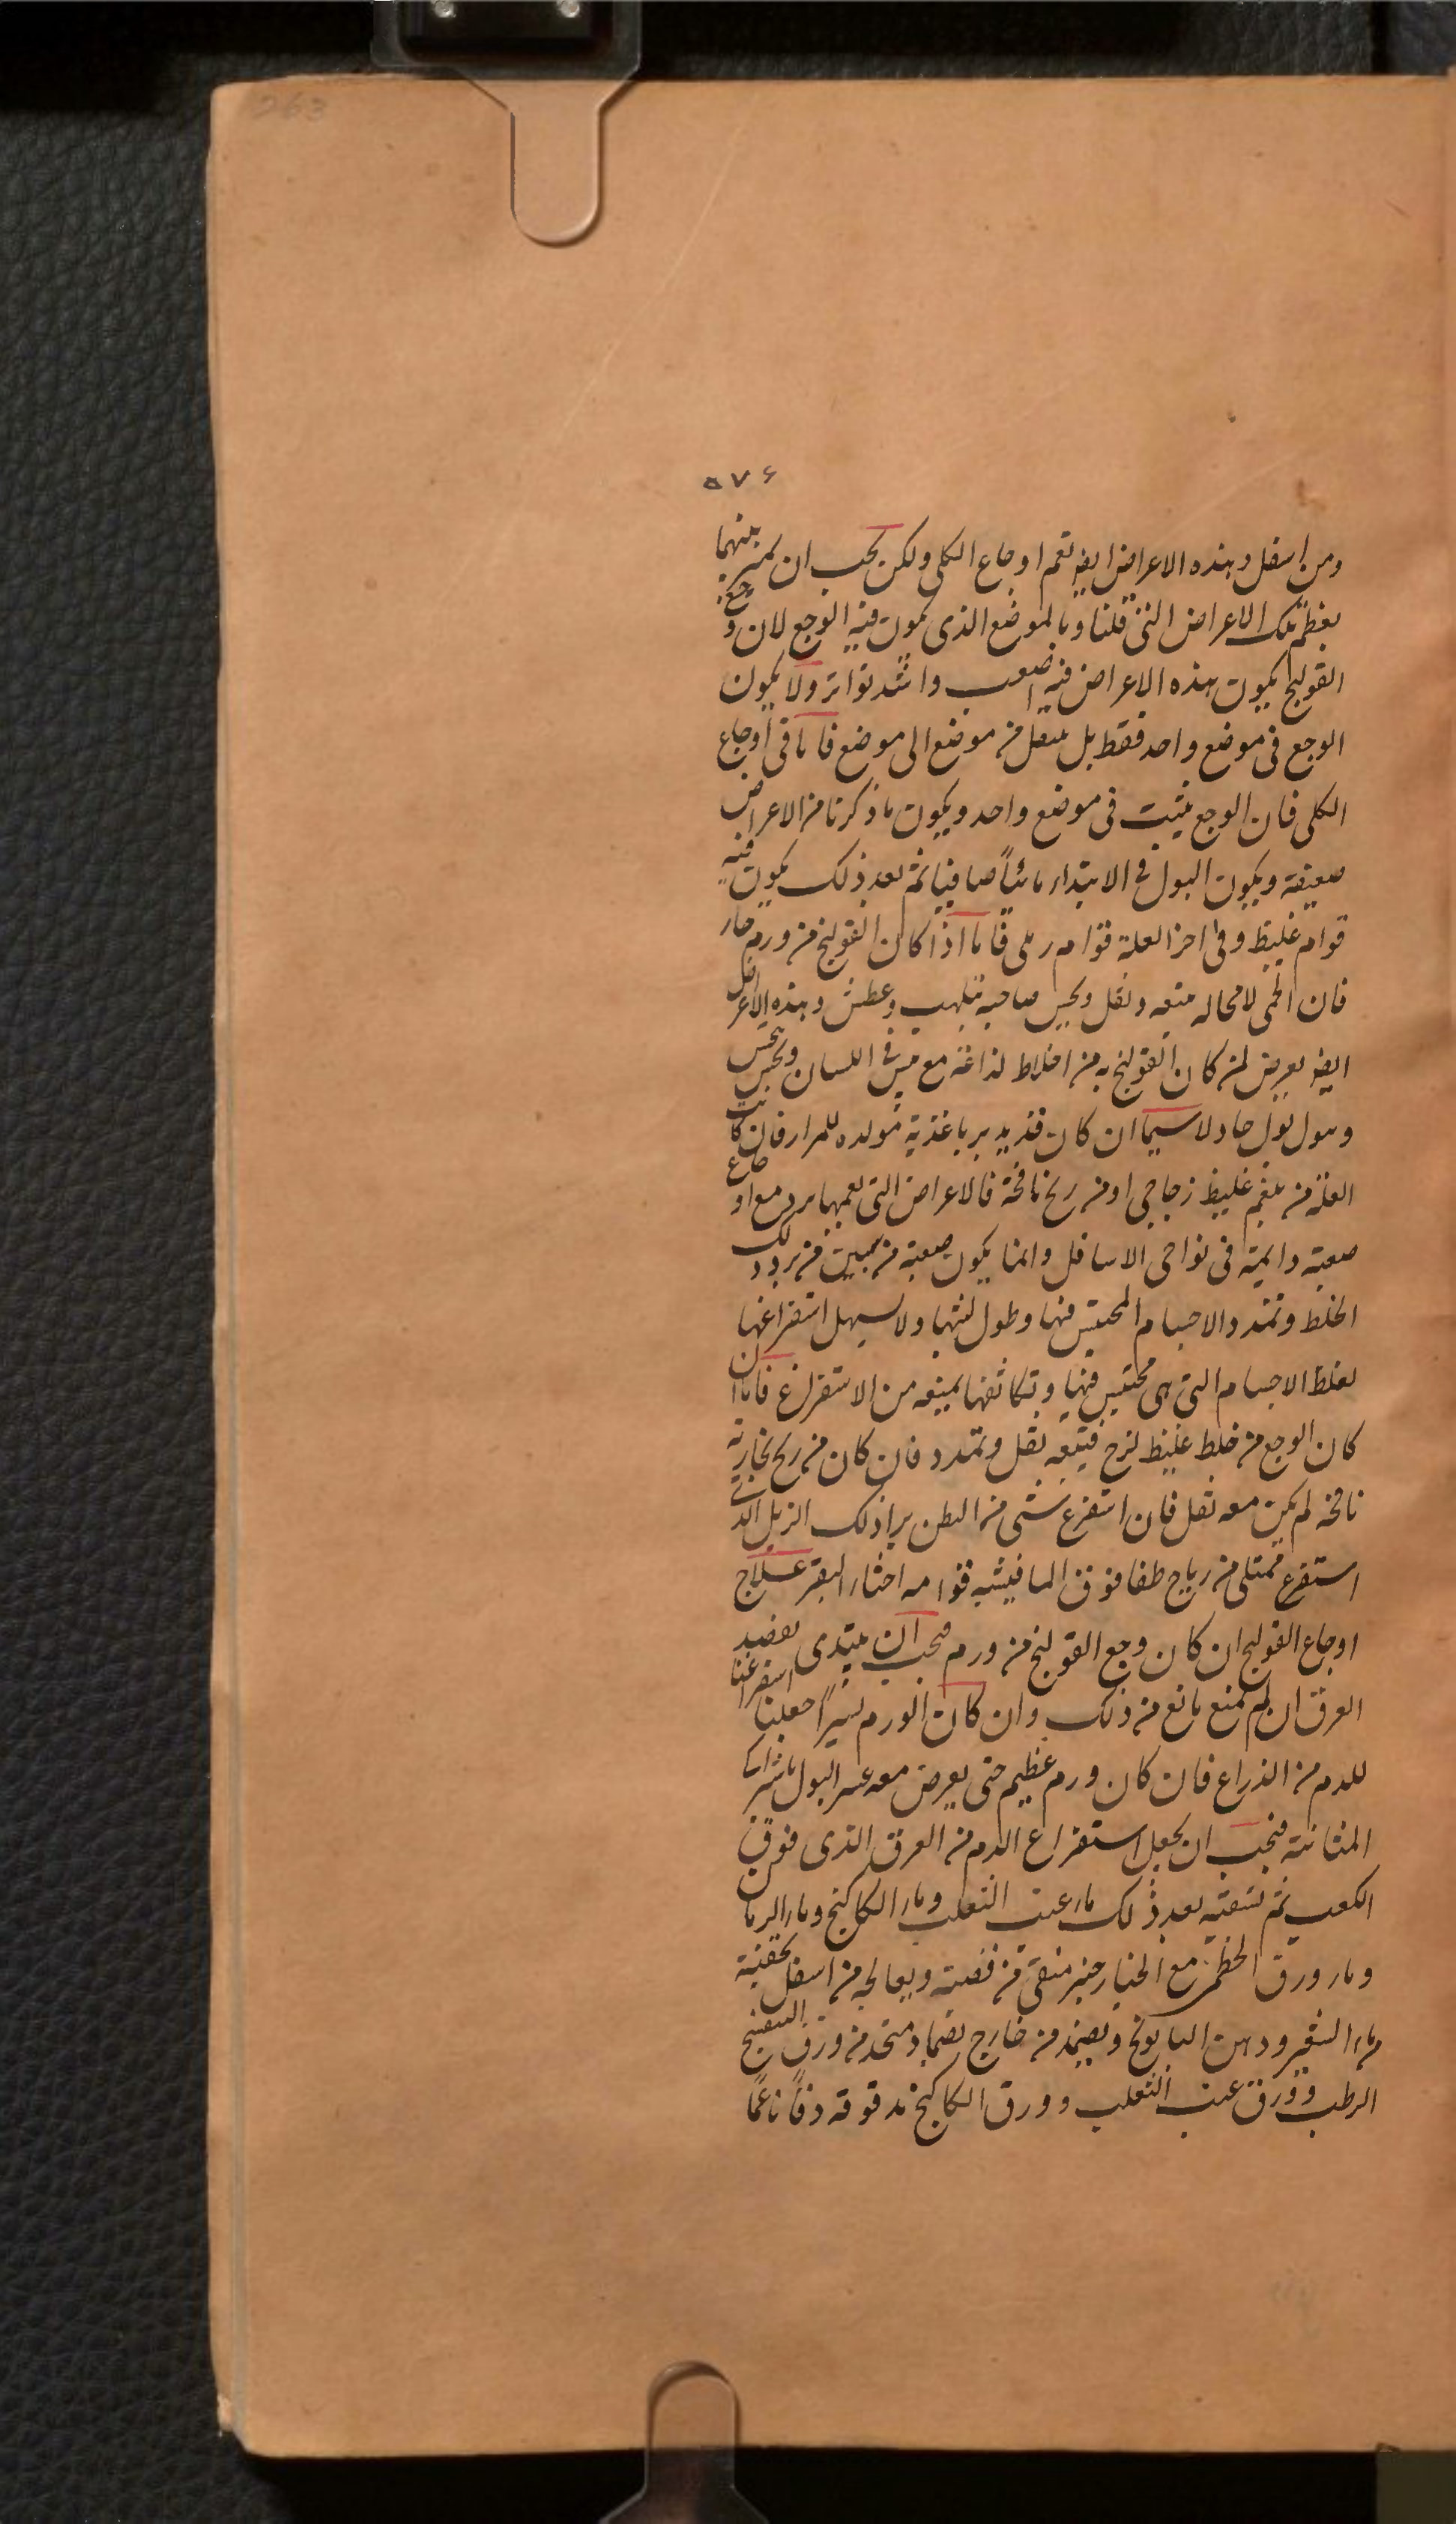 263
۵۷۶
ومن اسفل وهذه الاعراض ايض تعم اوجاع الكلى ولكن يجب ان نميز بينهما
بعظم تلك الاعراض التى قلنا وبالموضع الذى يكون فيه الوجع لان وجع
القولنج يكون هذه الاعراض فيه اصعب واشد تواتر ولا يكون
الوجع فى موضع واحد فقط بل ينتقل من موضع الى موضع فاما فى اوجاع
الكلى فان الوجع يثبت فى موضع واحد ويكون ما ذكرنا من الاعراض
ضعيفة ويكون البول فى الابتداء مائياً صافيا ثم بعد ذلك يكون فيه
قوام غليظ وفى اخر العلة قوام رملى فاما اذا كان القولنج من ورم حار
فان الحمى لا محاله تتبعه وثقل ويحس صاحبه بتلهب وعطش وهذه الاعراض
ايض يعرض لمن كان القولنج به من اخلاط لذاعة مع يبس فى اللسان ويحس
وببول بول حاد لاسيما ان كان قد يدبر باغذية مولده للمرار فان كانت
العلة من بلغم غليظ زجاجى او من ريح نافخة فالاعراض التى تعمهما برد مع اوجاع
صعبة دايمة فى نواحى الاسافل وانما يكون صعبة من سببين من برد ذلك
الخلط وتمدد الاجسام المحتبس فيها وطول لبثها ولا يسهل استفراغها
لغلظ الاجسام التى هى محتبس فيها وتكاثفها يمنعه من الاستفراغ فاما ان
كان الوجع من خلط غليظ لزج فيتبعه ثقل وتمدد فان كان من ريح بخارية
نافخة لم يكن معه ثقل فان استفرغ شى من البطن براز ذلك الزبل الذى
استفرغ ممتلى من رياح طفا فوق الما فيشبه قوامه اخثار البقر علاج
اوجاع القولنج ان كان وجع القولنج من ورم فيجب ان يبتدى بفصد
العرق ان لم يمنع مانع من ذلك وان كان الورم يسيراً جعلنا استفراغنا
للدم من الذراع فان كان ورم عظيم حتى يعرض معه عسر البول باشراك
المثانة فيجب ان يجعل استفراغ الدم من العرق الذى فوق
الكعب ثم نسقيه بعد ذلك ماء عنب الثعلب وماء الكاكنج وماء الرمان
وماء ورق الخطمى مع الخيار جنبر منقى من قصبته ويعالجه من اسفل بحقنة
ماء الشعير ودهن البابونج ونضمد من خارج بضماد متخد من ورق البنفسج
الرطب وورق عنب الثعلب وورق الكاكنج مدقوقه دقاً ناعماً